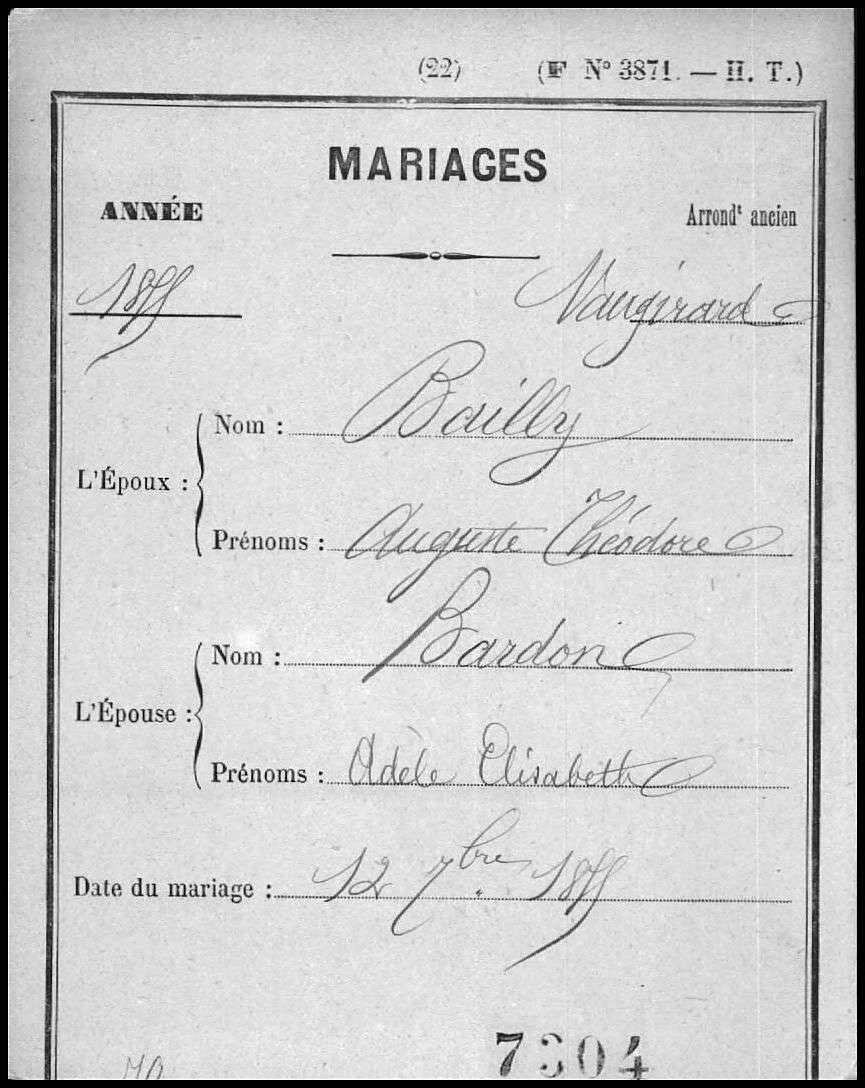 (22) (F N° 3871. — H. T.)
MARIAGES
ANNÉE Arrondt ancien
1855 Vaugirard
L'Époux :
Nom : Bailly
Prénoms : Auguste Théodore
L'Épouse :
Nom : Bardon
Prénoms : Adèle Elisabeth
Date du mariage : 12 7bre 1855
70 7304